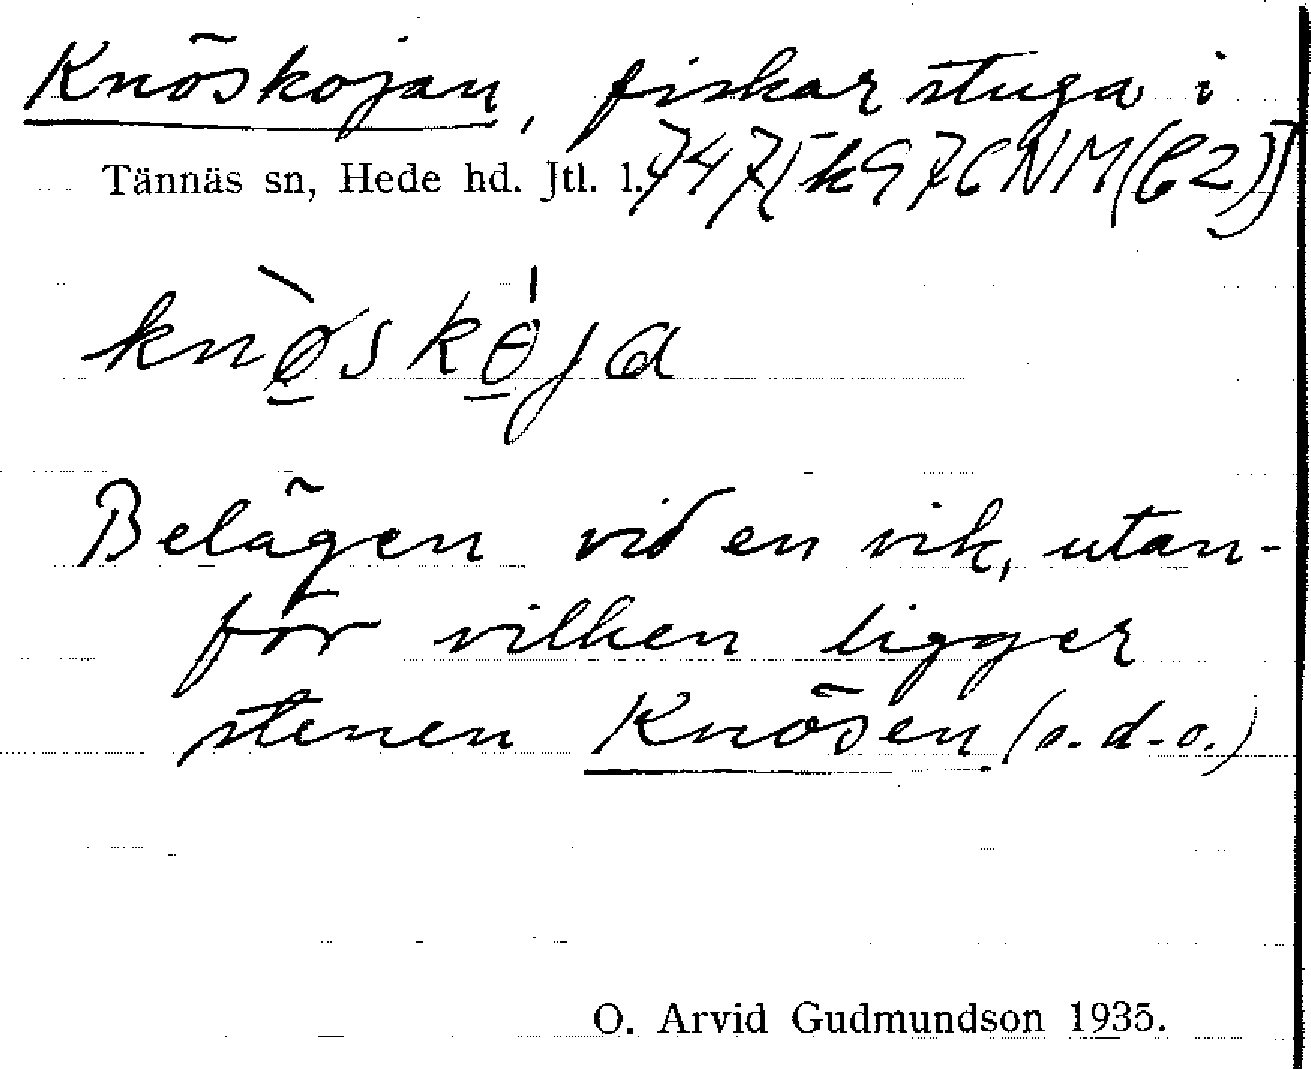 Knöskojan, fiskarstuga i
Tännäs sn, Hede hd. Jtl. l.
knø̀skɵ́ja
Belägen vid en vik, utan-
för vilken ligger
stenen Knösen (s.d.o.)
O. Arvid Gudmundson 1935.